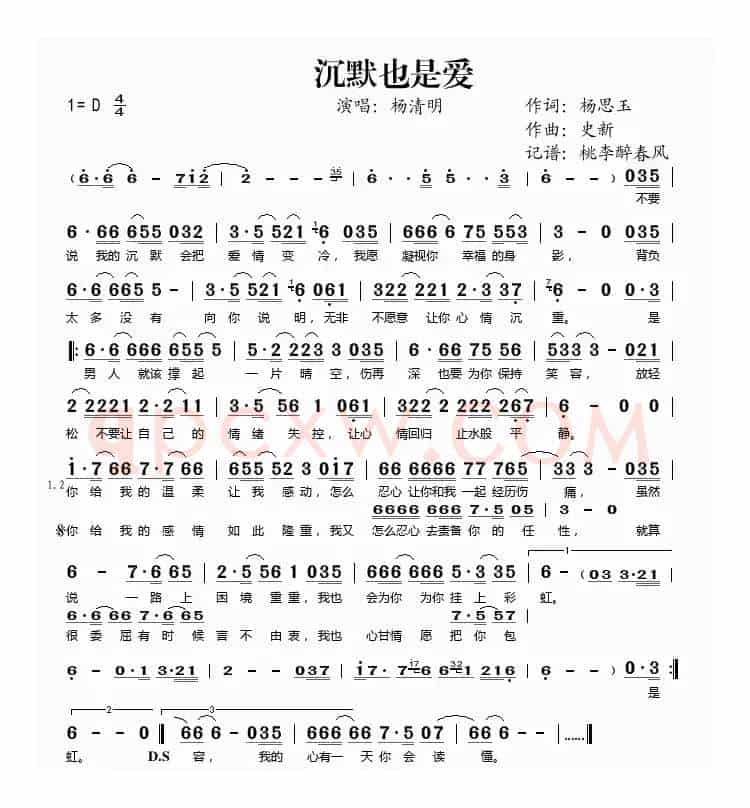 沉默也是爱
1= D 4/4 演唱：杨清明 作词：杨思玉
作曲：史新
记谱：桃李醉春风
( 6·6 6 - 7 i 2 | 2 - - - | 6·6 5 5·3 | 6 - - ) 035 |
不要
6·66 655 032 | 3·5 521 6 035 | 666 6 75 553 | 3 - 0 035 |
说 我的 沉 默 会把 爱 情 变 冷，我愿 凝视你 幸福的身 影， 背负
6·6 6665 5 - | 3·5 521 6 061 | 322 221 2·3 37 | 6 - - 035 |
太 多 没 有 向 你 说 明，无非 不愿意 让你 心 情 沉 重。 是
‖: 6·6 666 655 5 | 5·2 223 3 035 | 6·66 75 56 | 533 3 - 021 |
男 人 就该 撑 起 一 片 晴 空，伤再 深 也要 为你 保持 笑 容， 放轻
2 2221 2·2 11 | 3·5 56 1 061 | 322 2 222 267 | 6 - 0 0 |
松 不要让 自 己 的 情 绪 失 控，让心 情回归 止水般 平 静。
i·7 66 7·7 66 | 655 52 3 0 05 | 66 6666 77 765 | 33 3 - 035 |
1,2
你 给 我 的 温 柔 让 我 感 动，怎么 忍心 让你和我 一起 经历伤 痛， 虽然
6666 666 7·5 05 | 3 - 0
你 给 我 的 感 情 如 此 隆 重，我又 怎么忍心 去责备 你 的 任 性， 就算
6 - 7·6 65 | 2·5 56 1 035 | 66 666 5·3 35 | 6 - (03 3·21 |
1
说 一 路 上 困 境 重 重，我也 会为你 为你 挂 上 彩 虹。
6·6 66 7·6 65 7·5 57
很 委 屈 有 时 候 言 不 由 衷，我也 心甘情 愿 把 你 包
6 - 0·1 3·21 | 2 - - 037 | i7· 7·6 6 6·5 561 | 6 - - ) 0·3 :‖
是
2 3
6 - - 0 ‖ 66 6 - 035 | 666 66 7·5 07 | 66 6 - - | ......‖
虹。 D.S 容， 我的 心有一 天 你 会 读 懂。
qpcxw.COM